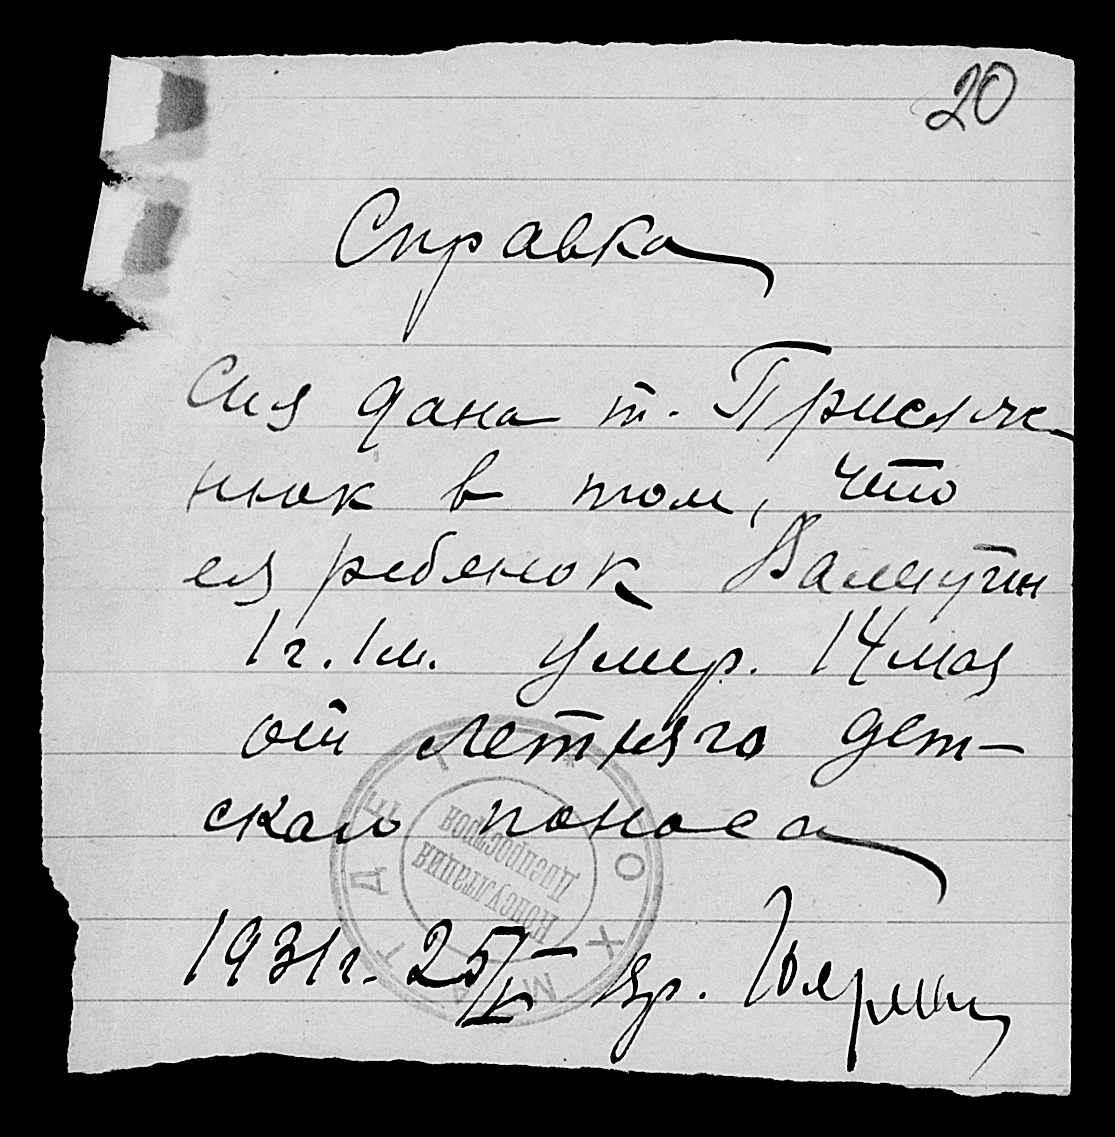 20
Справка
Сия дана т. Присяж-
нюк в том, что
ея ребянок Валентин
1г. 1м. умер. 14 мая
от летняго дет-
скаго поноса
1931г. 25/V Вр.
* ОХМАТДЕТ
Консултация
Дпепрострой